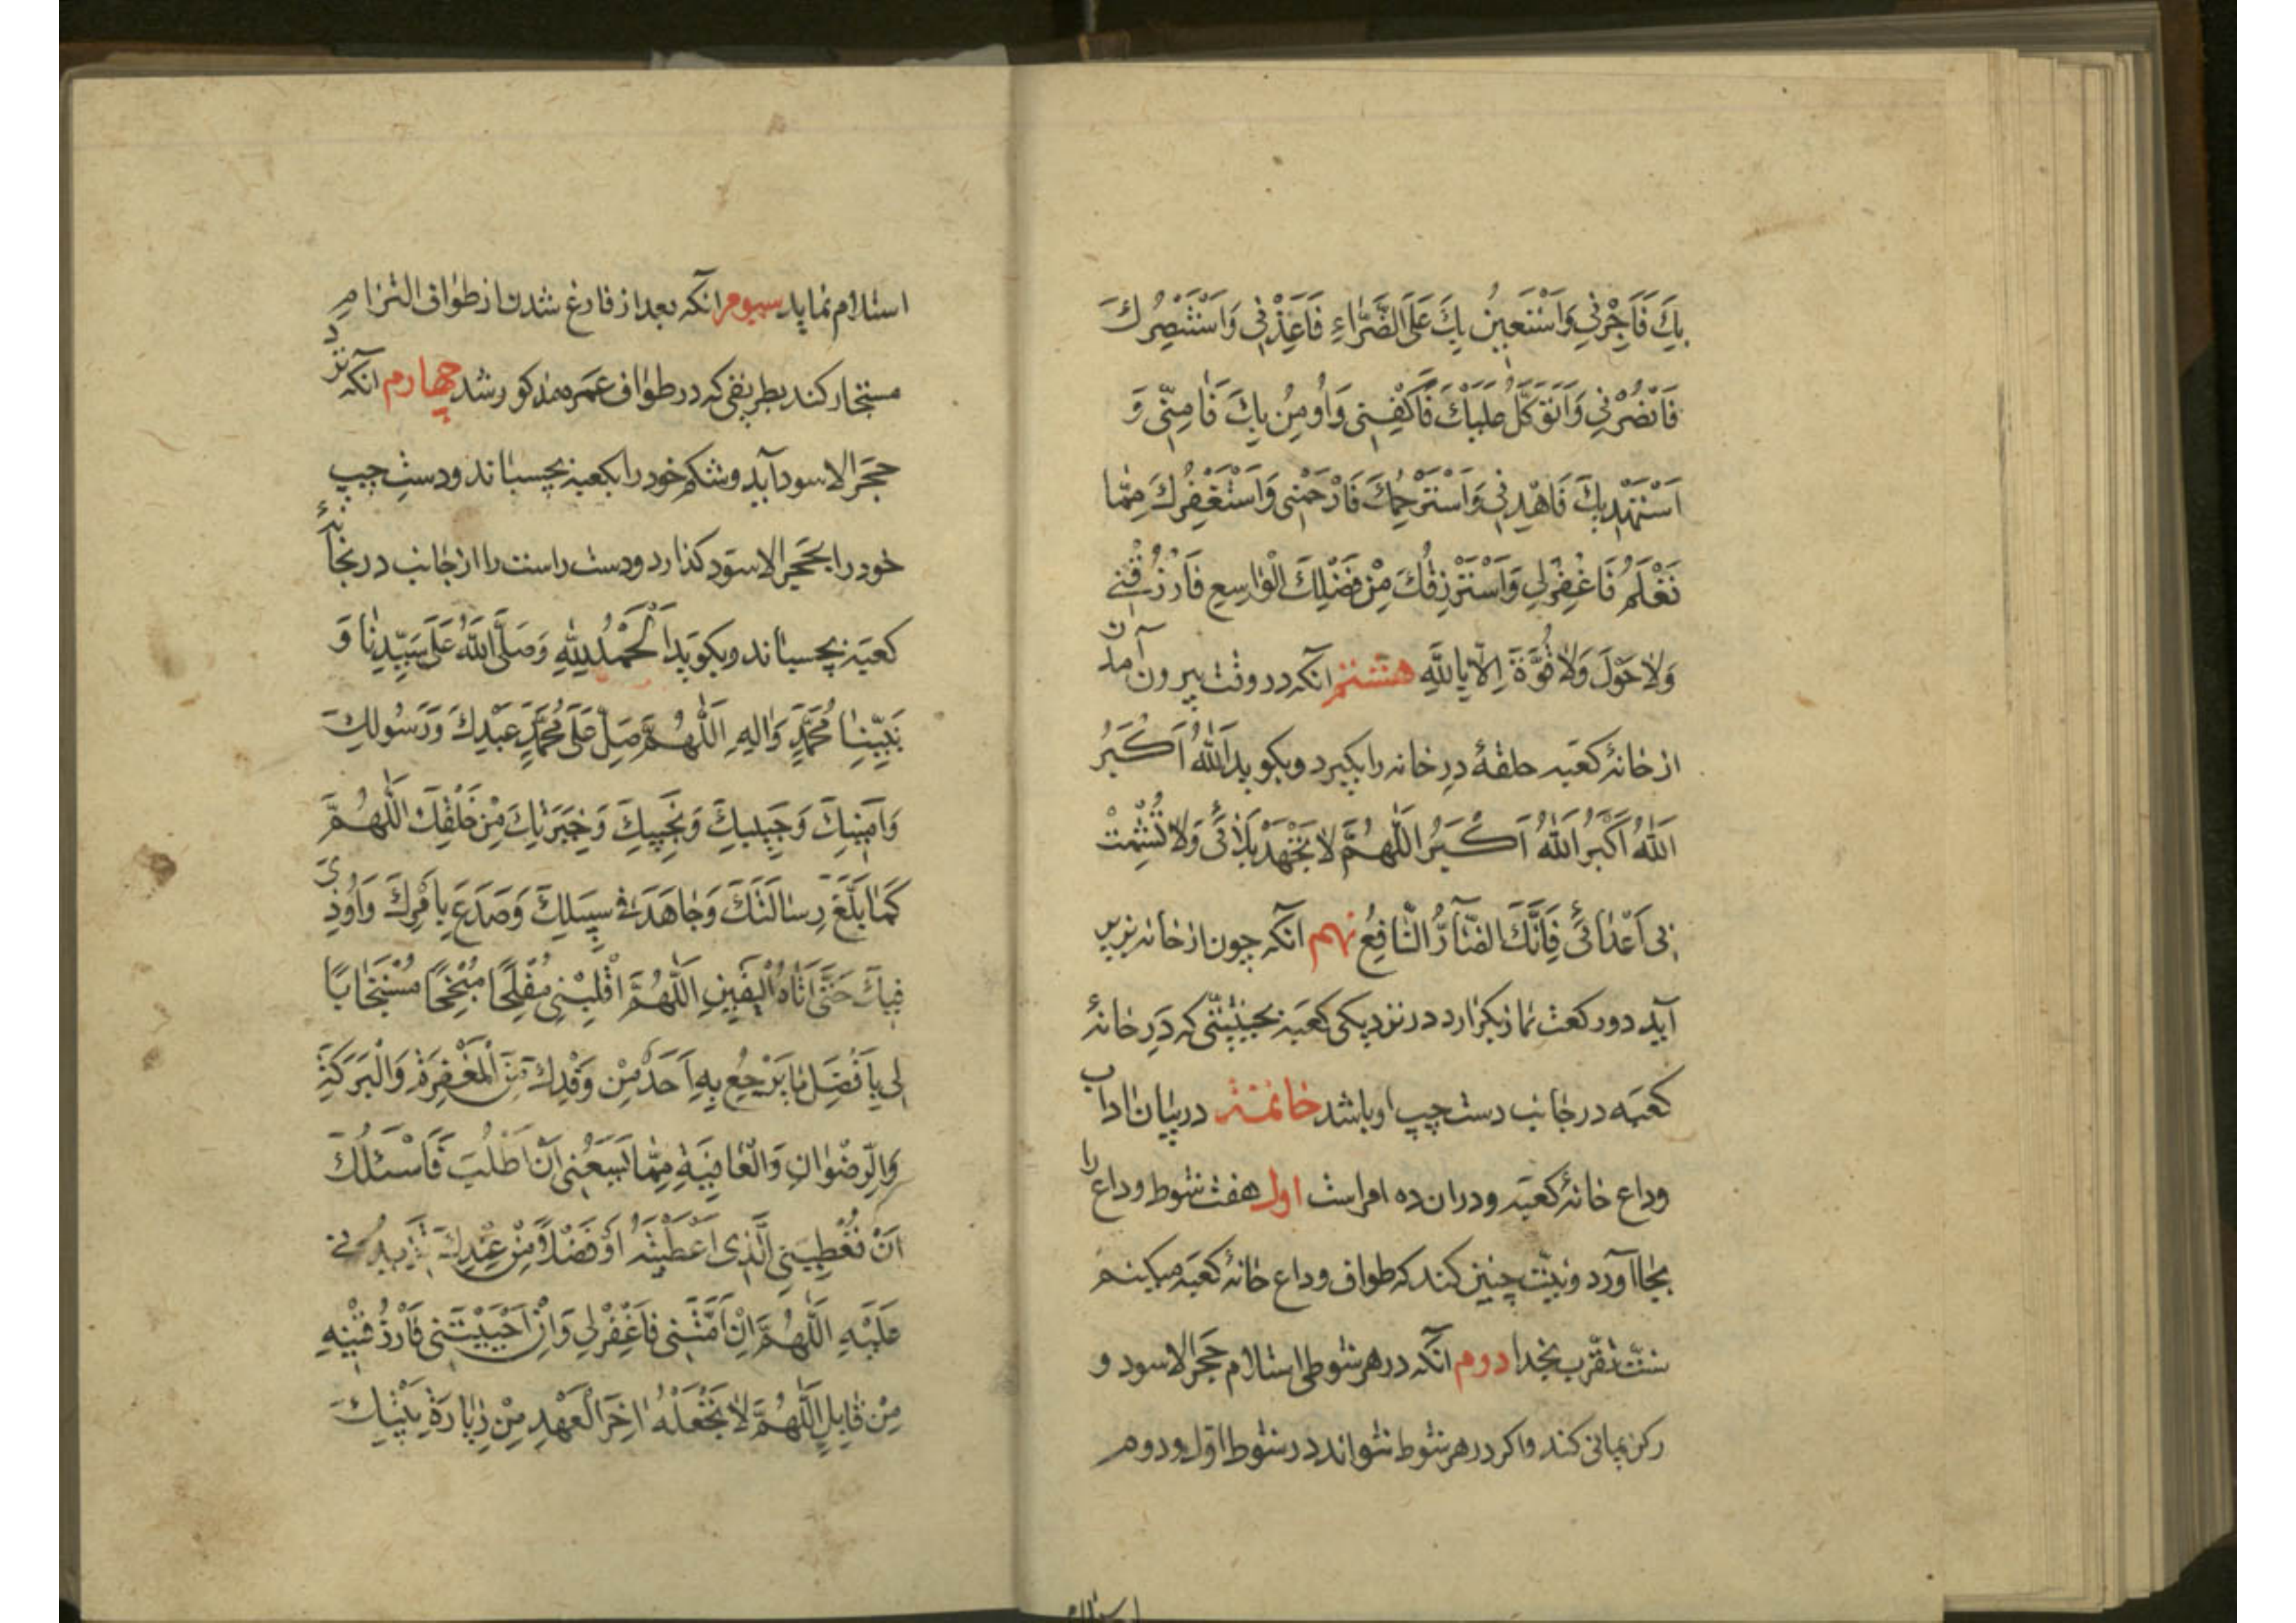 بِكَ فَاَجِرْنِي وَاَسْتَعِينُ بِكَ عَلَى الضَّرَّاءِ فَاَعِذْنِي وَاَسْتَنْصِرُكَ
فَانْصُرْنِي وَاَتَوَكَّلُ عَلَيْكَ فَاكْفِنِي وَاُومِنُ بِكَ فَامِنِّي وَ
اَسْتَهْدِيكَ فَاهْدِنِي وَاَسْتَرْحِمُكَ فَارْحَمْنِي وَاَسْتَغْفِرُكَ مِمَّا
تَعْلَمُ فَاغْفِرْلِي وَاَسْتَرْزِقُكَ مِنْ فَضْلِكَ الْوَاسِعِ فَارْزُقْنِي
وَلَا حَوْلَ وَلَا قُوَّةَ اِلَّا بِاللَّهِ هشتم آنكه در وقت بيرون آمدن
از خانهٔ كعبه حلقهٔ در خانه را بكيرد وبكويد اَللّٰهُ اَكْبَرُ
اَللّٰهُ اَكْبَرُ اَللّٰهُ اَكْبَرُ اَللّٰهُمَّ لَا تَجْهَدْ بَلَائِي وَلَا تُشْمِتْ
بِي اَعْدَائِي فَاِنَّكَ الضَّارُّ النَّافِعُ نهم آنكه چون از خانه بزير
آيد دو ركعت نماز بكزارد در نزديكى كعبه بحيثيّتى كه در خانهٔ
كعبه در جانب دست چپ او باشد خاتمة در بيان اداب
وداع خانهٔ كعبه ودران ده امر است اول هفت شوط وداع را
بجا آورد ونيّت چنين كند كه طواف وداع خانهٔ كعبه ميكنم
سنّت تقرّب بخدا دوم آنكه در هر شوطى استلام حجر الاسود و
ركن يمانى كند واكر در هر شوط نتواند در شوط اوّل ودوم
استلام نمايد سيوم انكه بعد از فارغ شدن از طواف التزام
مستجار كند بطريقى كه در طواف عمره مذكور شد چهارم آنكه نزد
حجر الاسود آيد وشكم خود را بكعبه بچسباند ودست چپ
خود را بحجر الاسود كذارد ودست راست را از جانب در بخانهٔ
كعبه بچسباند وبكويد اَلْحَمْدُ لِلّٰهِ وَصَلَّى اللّٰهُ عَلَى سَيِّدِنَا وَ
نَبِيِّنَا مُحَمَّدٍ وَالِهِ اَللّٰهُمَّ صَلِّ عَلَى مُحَمَّدٍ عَبْدِكَ وَرَسُولِكَ
وَاَمِينِكَ وَحَبِيبِكَ وَنَجِيِّكَ وَخِيَرَتِكَ مِنْ خَلْقِكَ اَللّٰهُمَّ
كَمَا بَلَّغَ رِسَالَتَكَ وَجَاهَدَ فِي سَبِيلِكَ وَصَدَعَ بِاَمْرِكَ وَاُوذِيَ
فِيكَ حَتَّى اَتَاهُ الْيَقِينِ اَللّٰهُمَّ اقْلِبْنِي مُفْلِحًا مُنْجِحًا مُسْتَجَابًا
لِي بِاَفْضَلِ مَا يَرْجِعُ بِهِ اَحَدٌ مِنْ وَفْدِكَ مِنَ الْمَغْفِرَةِ وَالْبَرَكَةِ
وَالرِّضْوَانِ وَالْعَافِيَةِ مِمَّا يَسَعُنِي اَنْ اَطْلُبَ فَاَسْئَلُكَ
اَنْ تُعْطِيَنِي الَّذِي اَعْطَيْتَهُ اَوْ فَضْلًا مِنْ عِنْدِكَ تَزِيدُنِي
عَلَيْهِ اَللّٰهُمَّ اِنْ اَمَتَّنِي فَاغْفِرْلِي وَاِنْ اَحْيَيْتَنِي فَارْزُقْنِيهِ
مِنْ قَابِلٍ اَللّٰهُمَّ لَا تَجْعَلْهُ اخِرَ الْعَهْدِ مِنْ زِيَارَةِ بَيْتِكَ